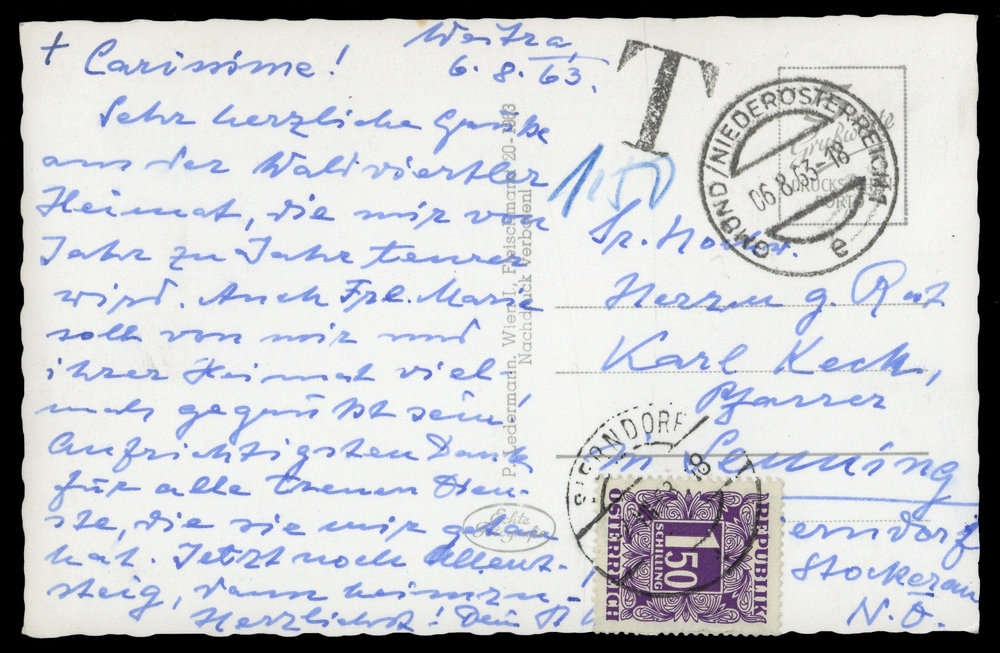 + Carissime!
Weitra,
6.8.63.
Sehr herzliche Grüße
aus der Waldviertler
Heimat, die mir von
Jahr zu Jahr teurer
wird. Auch Frl. Marie
soll von mir und
ihrer Heimat viel-
mals gegrüßt sein!
Aufrichtigsten Dank
für alle treuen Dien-
ste, die sie mir getan
hat. Jetzt noch Allent-
steig, dann heimzu-
Herzlichst! Dein
P. Ledermann, Wien I., Fleischmarkt 20-1963
Nachdruck verboten!
Echte
T
1'50
GMÜND / NIEDERÖSTERREICH 1
06.8.63-18
e
Sr. Hochw.
Herrn g. Rat
Karl Keck,
Pfarrer
in
Stockerau
N.Ö.
18
REPUBLIK
ÖSTERREICH
1.50
SCHILLING